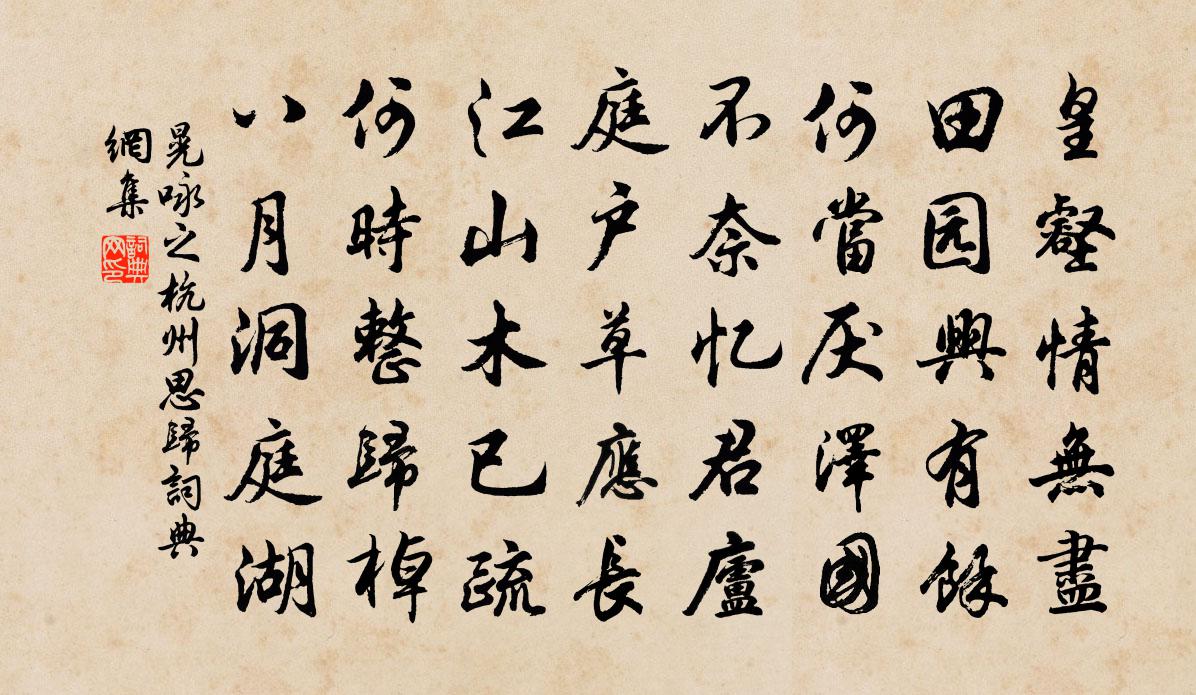 皇壑情無盡
田园興有餘
何當厌澤國
不奈忆君廬
庭户草應長
江山木已疏
何時整歸棹
八月洞庭湖
晃咏之杭州思歸詞典
網集
詞典网印